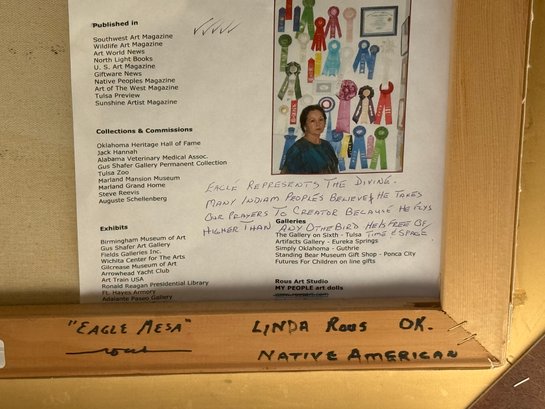 Published in
Southwest Art Magazine
Wildlife Art Magazine
Art World News
North Light Books
U. S. Art Magazine
Giftware News
Native Peoples Magazine
Art of The West Magazine
Tulsa Preview
Sunshine Artist Magazine
Collections & Commissions
Oklahoma Heritage Hall of Fame
Jack Hannah
Alabama Veterinary Medical Assoc.
Gus Shafer Gallery Permanent Collection
Tulsa Zoo
Marland Mansion Museum
Marland Grand Home
Steve Reevis
Auguste Schellenberg
EAGLE REPRESENTS THE DIVINE.
MANY INDIAM PEOPLES BELIEVE HE TAKES
OUR PRAYERS TO CREATOR BECAUSE HE FLYS
HIGHER THAN ANY OTHE BIRD. HE IS FREE OF
TIME & SPACE.
Exhibits
Birmingham Museum of Art
Gus Shafer Art Gallery
Fields Galleries Inc.
Wichita Center for The Arts
Gilcrease Museum of Art
Arrowhead Yacht Club
Art Train USA
Ronald Reagan Presidential Library
Ft. Hayes Armory
Adalante Paseo Gallery
Galleries
The Gallery on Sixth - Tulsa
Artifacts Gallery - Eureka Springs
Simply Oklahoma - Guthrie
Standing Bear Museum Gift Shop - Ponca City
Futures For Children on line gifts
Rous Art Studio
MY PEOPLE art dolls
"EAGLE MESA"
LINDA ROUS OK.
NATIVE AMERICAN